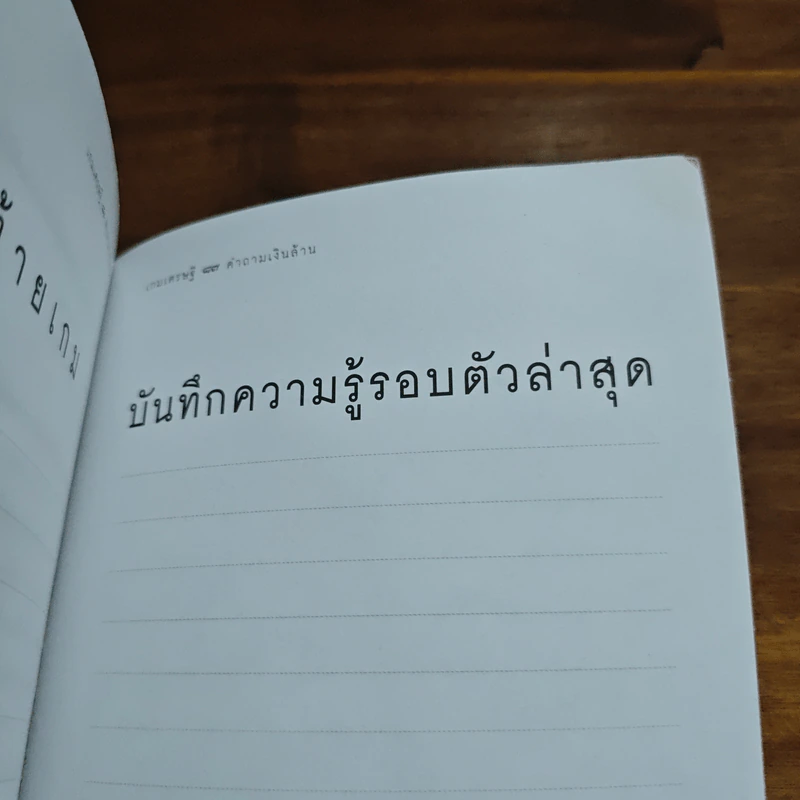 ้ายเกม
เกมเศรษฐี ๙๙ คำถามเงินล้าน
บันทึกความรู้รอบตัวล่าสุด